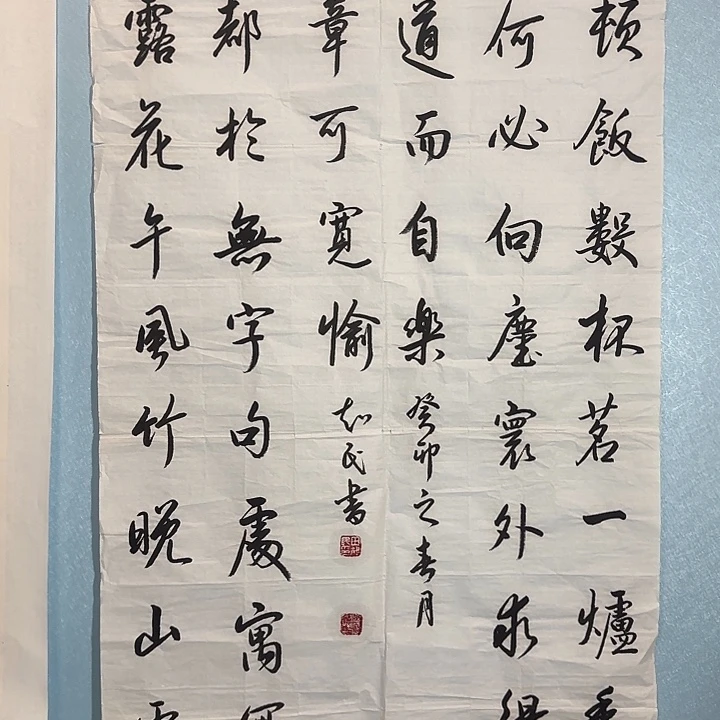 頓飯數杯茗一爐
何必向塵寰外求
道而自樂
癸卯之春月
露花午風竹晚山
都於無字句處寓
章可寬愉
知民書